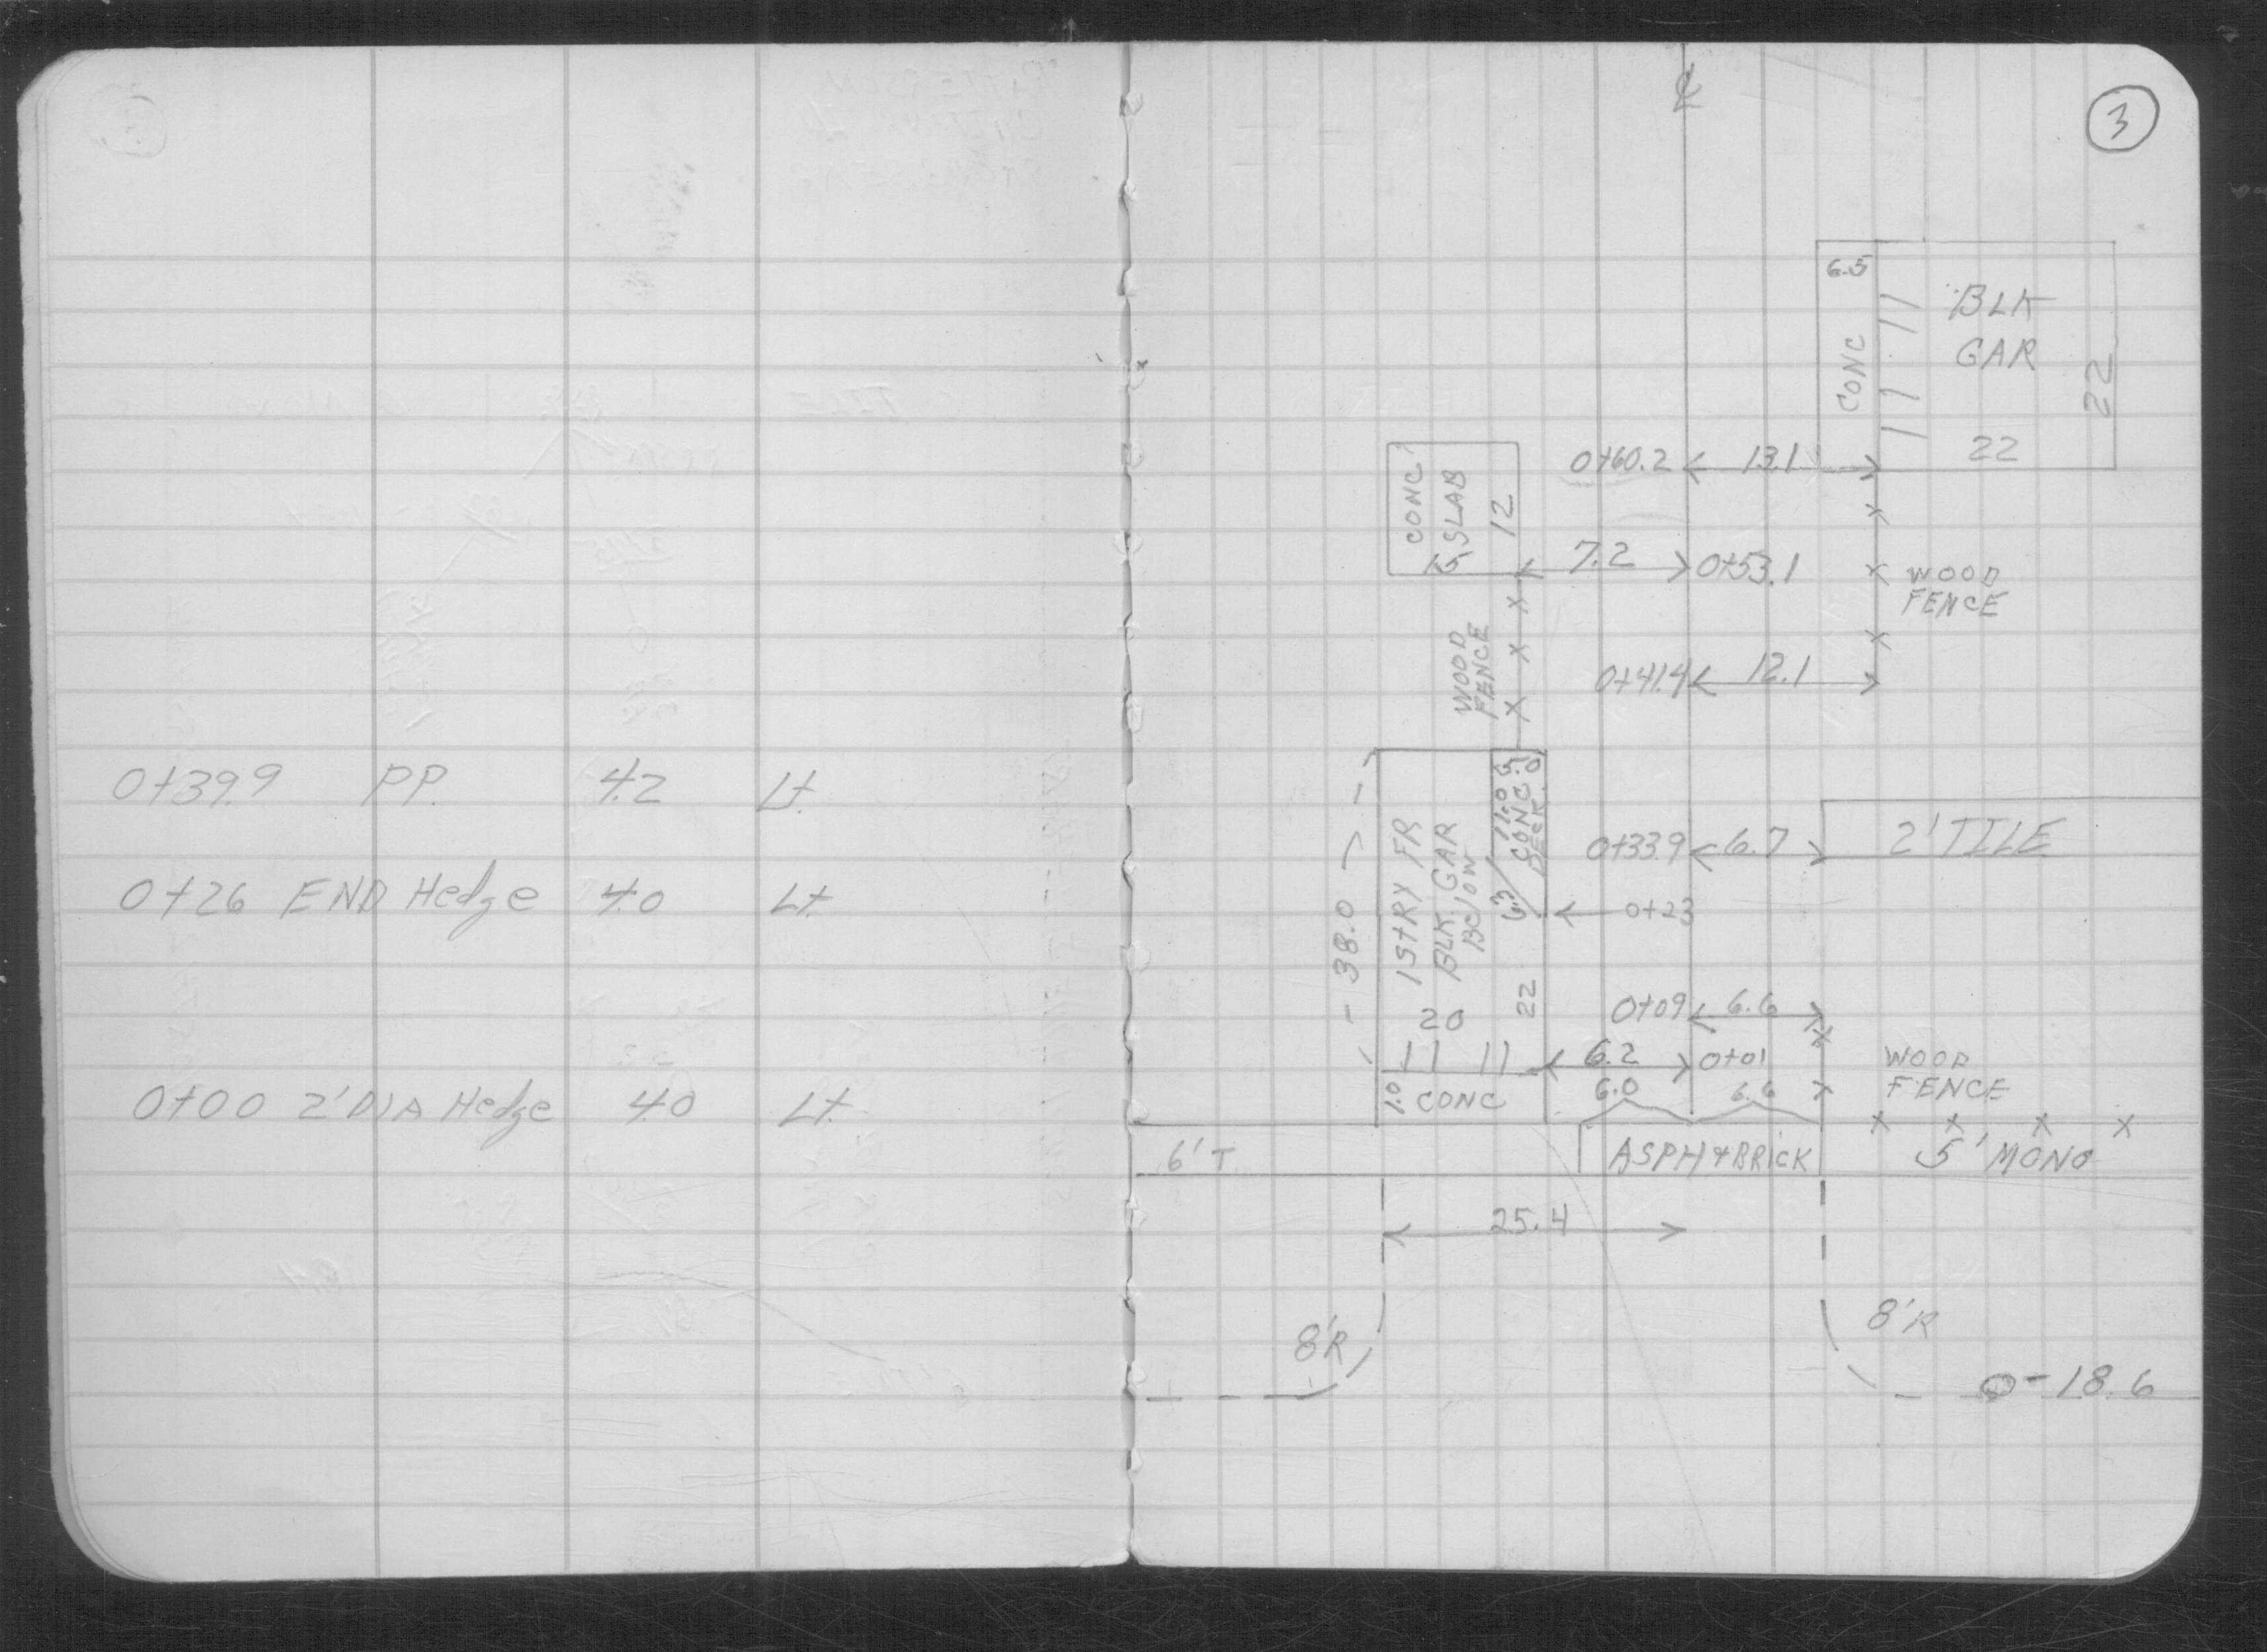 0+39.9 PP. 4.2 Lt.
0+26 END Hedge 4.0 Lt.
0+00 2' DIA Hedge 4.0 Lt.
3
℄
6.5
CONC
BLK
GAR
22
22
CONC
SLAB
15
12
0+60.2 13.1
7.2 0+53.1
WOOD
FENCE
WOOD
FENCE
0+41.4 12.1
38.0
1 STRY FR
BLK. GAR
BElOW
20
22
6.3
11.0
CONC
DECK
5.0
0+33.9 6.7
2' TILE
0+23
0+09 6.6
6.2 0+01
WOOD
FENCE
6.0 6.6
1.0 CONC
6' T
ASPH & BRICK
5' MONO
25.4
8'R
8'R
0-18.6